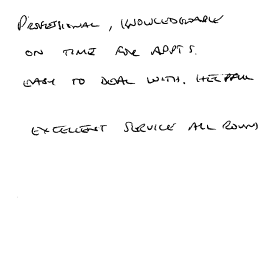 PROFESSIONAL, KNOWLEDGEABLE
ON TIME FOR APPTS.
EASY TO DEAL WITH. HELPFUL
EXCELLENT SERVICE ALL ROUND